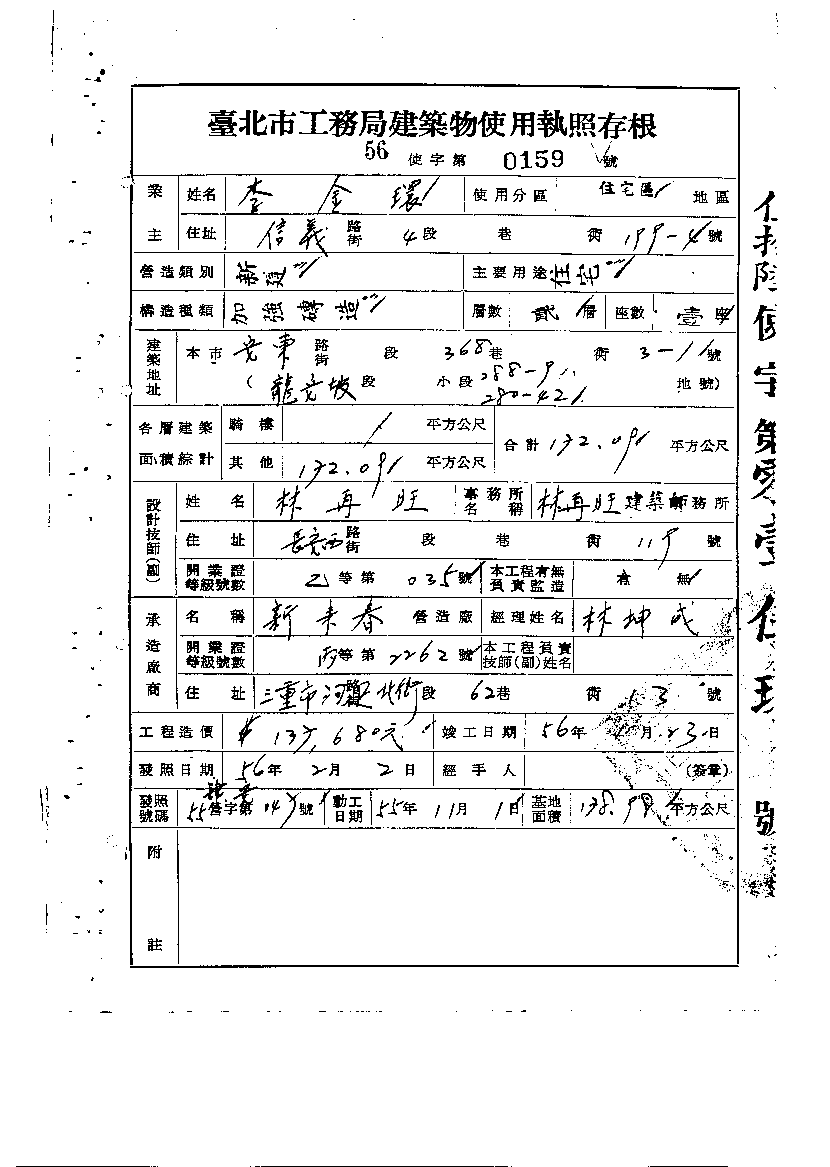 臺北市工務局建築物使用執照存根
56 使字第 0159 號
業主 姓名 李金環 使用分區 住宅區 地區
住址 信義 路街 4段 巷 街 199-4號
營造類別 新建 主要用途 住宅
構造種類 加強磚造 層數 貳層 座數 壹
建築地址 本市 安東 路街 段 368巷 街 3-11號
(龍安坡段 小段 288-91 280-421 地號)
各層建築面積綜計 騎樓 / 平方公尺 合計 172.09 平方公尺
其他 172.09 平方公尺
設計技師(副) 姓名 林再旺 事務所名稱 林再旺建築師事務所
住址 長安西 路街 段 巷 街 119號
開業證等級號數 乙等第 035號 本工程有無負責監造 有 無
承造廠商 名稱 新來春 營造廠 經理姓名 林坤成
開業證等級號數 丙等第 2262號 本工程負責技師(副)姓名
住址 三重市河觀北街 段 62巷 街 13號
工程造價 137,680元 竣工日期 56年 1月 23日
發照日期 56年 2月 2日 經手人 (簽章)
發照號碼 55營字第 號 動工日期 55年 11月 1日 基地面積 138.99 平方公尺
附註
使字第零壹 號